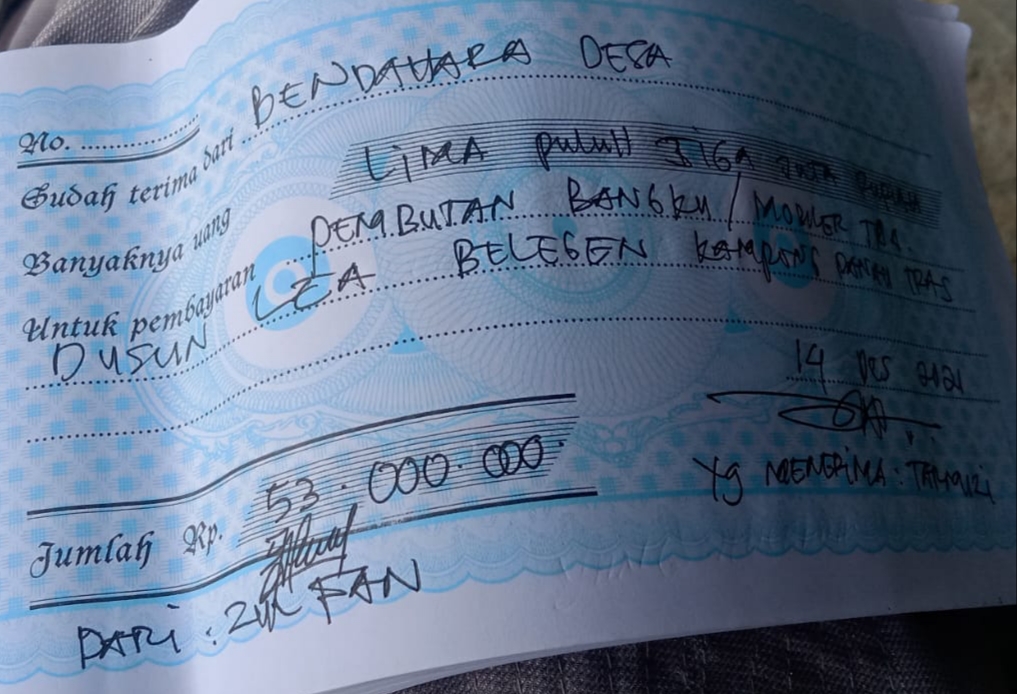 No. ..........
Sudah terima dari BENDAHARA DESA
Banyaknya uang LIMA puluH TIGA JUTA RUPIAH
Untuk pembayaran PEMBUTAN BANGKU / MOBLER TRA
DUSUN LEA BELEGEN KAMPONG TRAS
14 DES 2021
Jumlah Rp. 53.000.000
Yg MENERIMA : TARMIZI
DARI : ZUL FAN